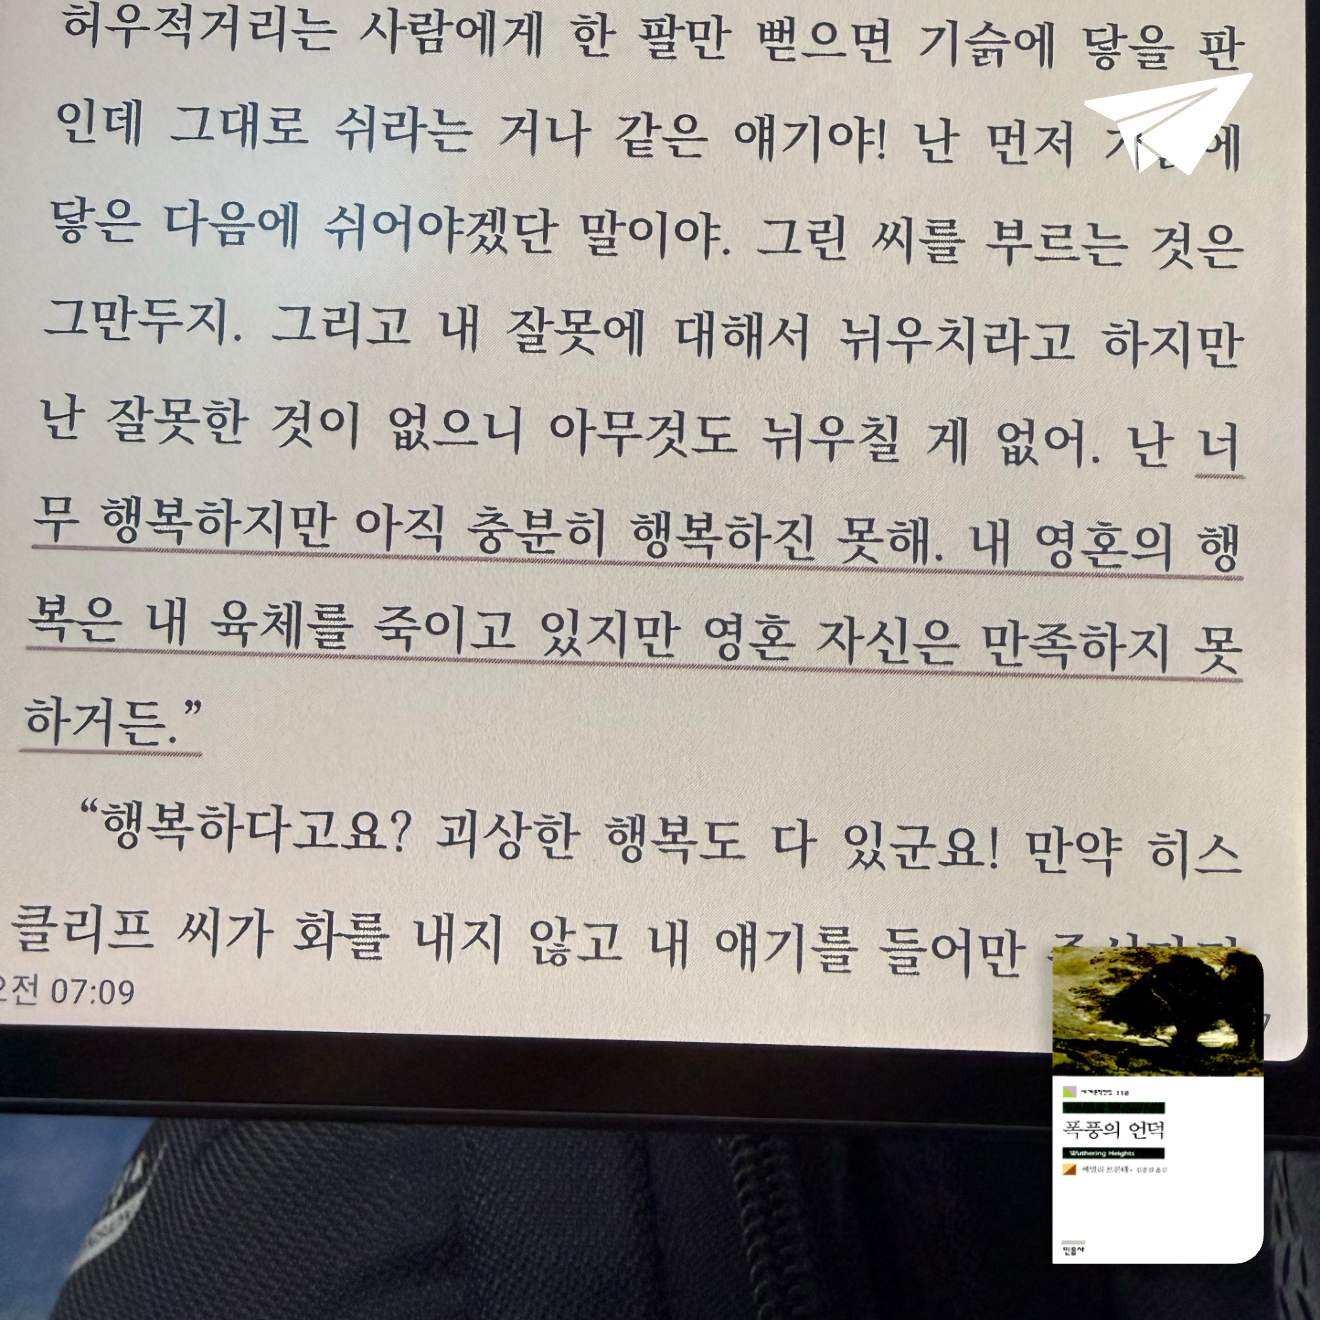 허우적거리는 사람에게 한 팔만 뻗으면 기슭에 닿을 판
인데 그대로 쉬라는 거나 같은 얘기야! 난 먼저
닿은 다음에 쉬어야겠단 말이야. 그린 씨를 부르는 것은
그만두지. 그리고 내 잘못에 대해서 뉘우치라고 하지만
난 잘못한 것이 없으니 아무것도 뉘우칠 게 없어. 난 너
무 행복하지만 아직 충분히 행복하진 못해. 내 영혼의 행
복은 내 육체를 죽이고 있지만 영혼 자신은 만족하지 못
하거든.”
“행복하다고요? 괴상한 행복도 다 있군요! 만약 히스
클리프 씨가 화를 내지 않고 내 얘기를 들어만
오전 07:09
세계문학전집 118
폭풍의 언덕
Wuthering Heights
에밀리 브론테·
민음사